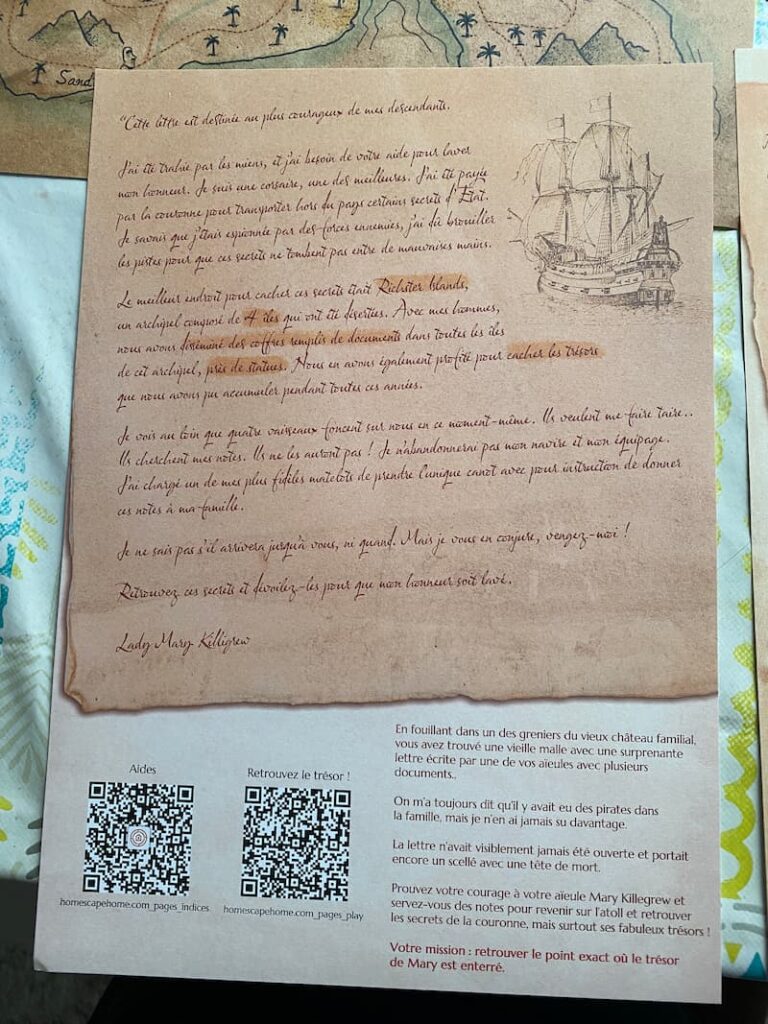 Sand
"Cette lettre est destinée au plus courageux de mes descendants.
J'ai été trahie par les miens, et j'ai besoin de votre aide pour laver
mon honneur. Je suis une corsaire, une des meilleures. J'ai été payée
par la couronne pour transporter hors du pays certains secrets d'État.
Je savais que j'étais espionnée par des forces ennemies, j'ai dû brouiller
les pistes pour que ces secrets ne tombent pas entre de mauvaises mains.
Le meilleur endroit pour cacher ces secrets était Richster Islands,
un archipel composé de 4 îles qui ont été désertées. Avec mes hommes,
nous avons disséminé des coffres remplis de documents dans toutes les îles
de cet archipel, près de statues. Nous en avons également profité pour cacher les trésors
que nous avons pu accumuler pendant toutes ces années.
Je vois au loin que quatre vaisseaux foncent sur nous en ce moment-même. Ils veulent me faire taire..
Ils cherchent mes notes. Ils ne les auront pas ! Je n'abandonnerai pas mon navire et mon équipage.
J'ai chargé un de mes plus fidèles matelots de prendre l'unique canot avec pour instruction de donner
ces notes à ma famille.
Je ne sais pas s'il arrivera jusqu'à vous, ni quand. Mais je vous en conjure, vengez-moi !
Retrouvez ces secrets et dévoilez-les pour que mon honneur soit lavé.
Lady Mary Killigrew
Aides
homescapehome.com_pages_indices
Retrouvez le trésor !
homescapehome.com_pages_play
En fouillant dans un des greniers du vieux château familial,
vous avez trouvé une vieille malle avec une surprenante
lettre écrite par une de vos aïeules avec plusieurs
documents..
On m'a toujours dit qu'il y avait eu des pirates dans
la famille, mais je n'en ai jamais su davantage.
La lettre n'avait visiblement jamais été ouverte et portait
encore un scellé avec une tête de mort.
Prouvez votre courage à votre aïeule Mary Killegrew et
servez-vous des notes pour revenir sur l'atoll et retrouver
les secrets de la couronne, mais surtout ses fabuleux trésors !
Votre mission : retrouver le point exact où le trésor
de Mary est enterré.